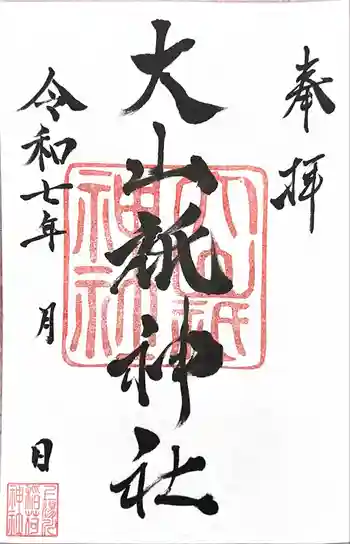 奉拝
大山祇神社
令和七年 月 日
大山祇
神社
稲荷
神社